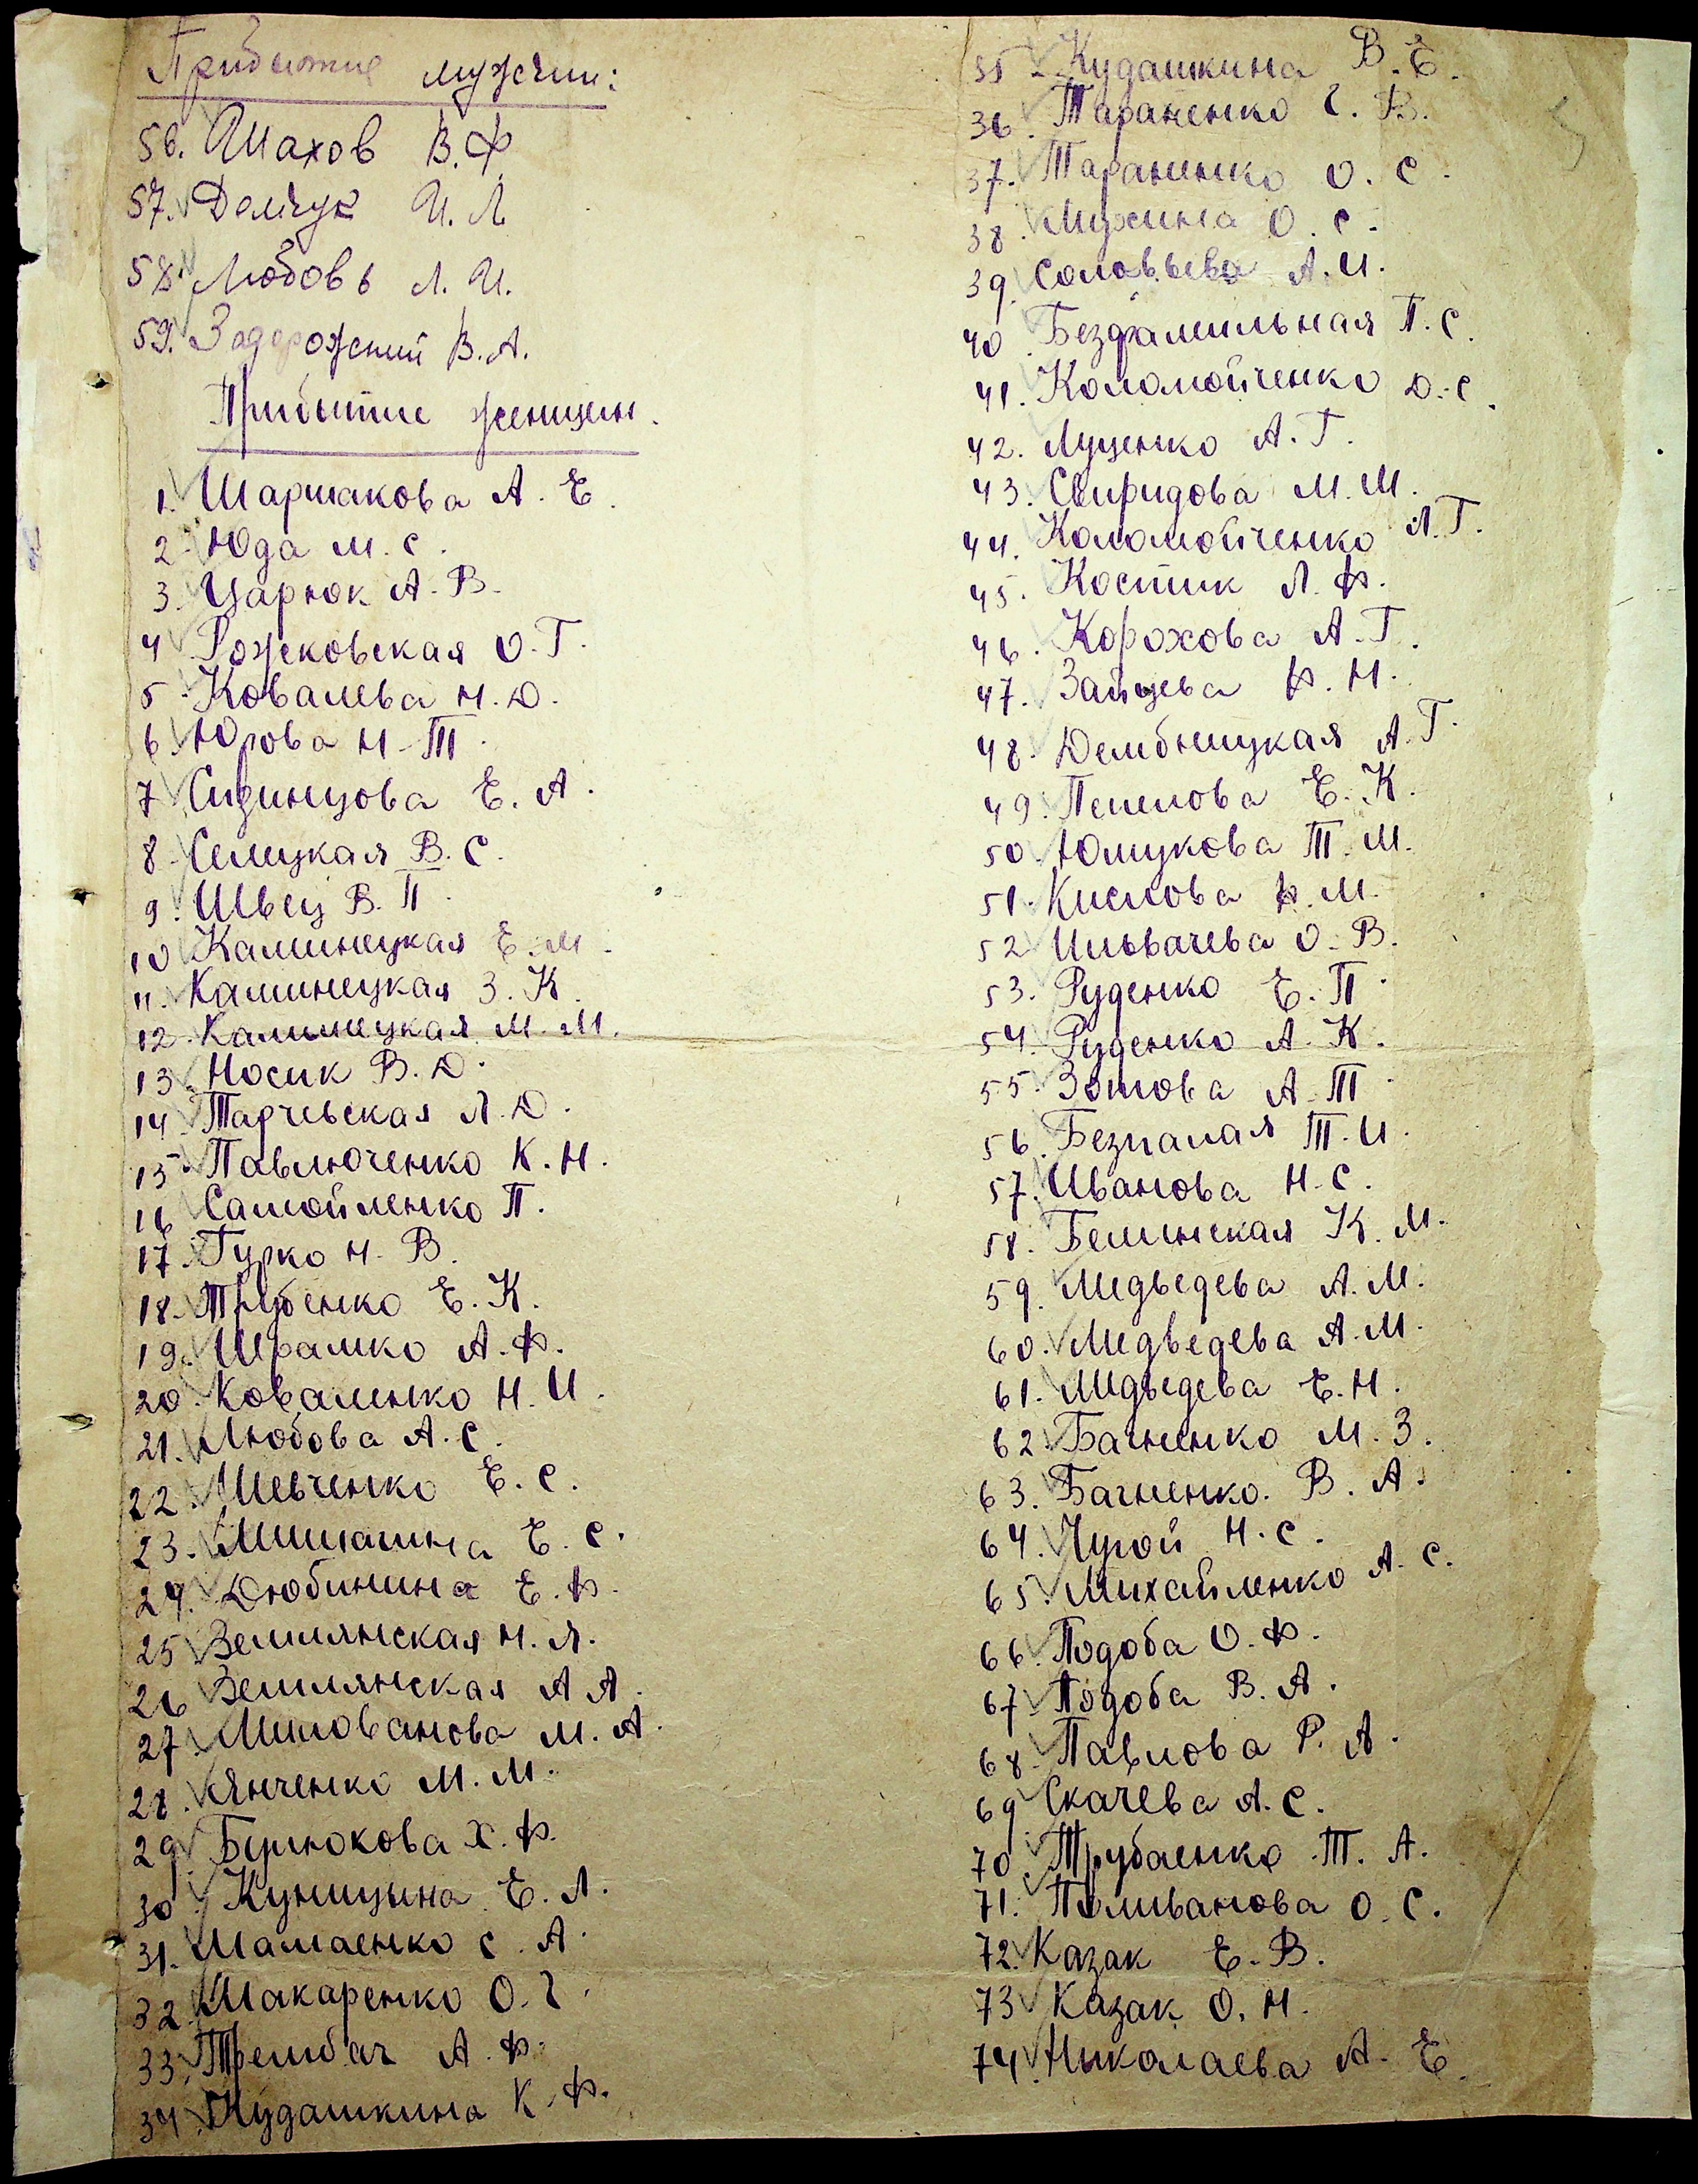 Прибытие мужчин:
56. Шахов В.Ф
57. Демчук И.Л
58. Любовь Л.И.
59. Задорожний В.А.
Прибытие женщин.
1. Шаршакова А.Е.
2. Юда М.С.
3. Царюк А.В.
4 Рожековская О.Г.
5. Ковалева Н.Д.
6. Юрова Н.Т.
7 Сидинцова Е.А.
8. Селицкая В.С.
9. Швец В.П.
10 Каминецкая Е.М.
11. Каминецкая З.К.
12. Каминецкая М.М.
13. Носик В.Д.
14 Тарчевская Л.Д.
15. Павлюченко К.Н.
16 Самойленко П.
17. Гурко Н.В.
18. Трубенко Е.К.
19. Шрамко А.Ф.
20. Коваленко Н.И.
21. Любова А.С.
22. Шевченко Е.С.
23. Мишагина Е.С.
24. Дюбинина Е.Ф.
25 Землянская Н.Я.
26 Землянская А А.
27. Милованова М.А.
28. Янченко М.М.
29 Бурлюкова Х.Ф.
30. Куницына Е.Л.
31. Мамаенко С.А.
32 Макаренко О.Г.
33. Трембач А.Ф.
34. Кудашкина К.Ф.
35 Кудашкина В.Е.
36. Тараненко Г.В.
37. Тараненко О.С.
38. Мухина О.С.
39. Соловьева А.И.
40. Безфамильная П.С.
41. Коломойченко Д.С.
42. Луценко А.Г.
43. Свиридова М.М.
44. Коломойченко Л.Г.
45. Костик Л.Ф.
46. Корохова А.Г.
47. Зайцева Ф.Н.
48. Дембницкая А.Г.
49. Пепелова Е.К.
50. Юмукова Т.М.
51. Кислова Ф.М.
52 Ильвачева О.В.
53. Руденко Е.П.
54. Руденко А.К.
55. Зотова А.Т.
56. Безпалая Т.И.
57. Иванова Н.С.
58. Белинская К.М.
59. Медведева А.М.
60. Медведева А.М.
61. Медведева Е.Н.
62. Багненко М.З.
63. Багненко. В.А.
64. Чугой Н.С.
65. Михайленко А.С.
66. Подоба О.Ф.
67 Подоба В.А.
68 Павлова Р.А.
69 Скачева А.С.
70. Трубаенко Т.А.
71. Поливанова О.С.
72. Казак Е.В.
73 Казак О.Н.
74. Николаева А.Е.